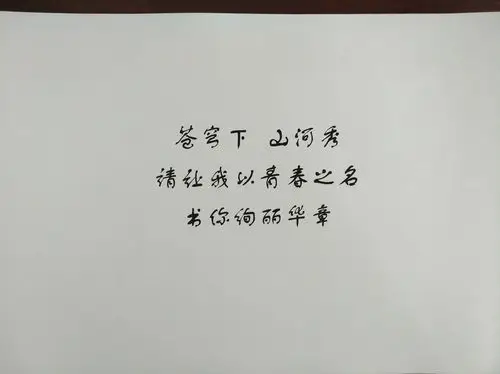 苍穹下 山河秀
请让我以青春之名
书你绚丽华章